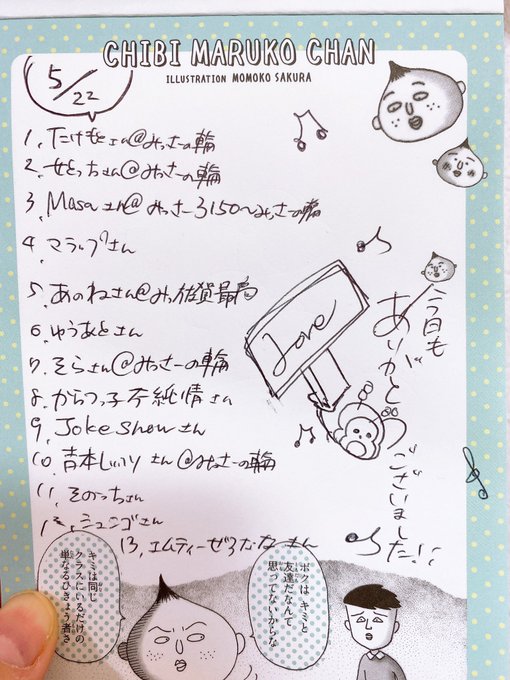 CHIBI MARUKO CHAN
ILLUSTRATION MOMOKO SAKURA
5/22
1, たけもとさん@みっさーの輪
2, せとっちさん@みっさーの輪
3, Masaさん@みっさー3150〜みっさーの輪
4, マラップさん
5, あのねさん@みっ佐賀最高
6, ゆうあとさん
7, そらさん@みっさーの輪
8, からつっ子不純情さん
9, Joke Showさん
10, 吉本しいたけ さん@みっさーの輪
11, そのっちさん
12, ミュニゴさん
13, エムティーぜろななさん
Love
今日も
ありがとう
ございました!!
ボクは、キミと
友達だなんて
思ってないからな
キミは同じ
クラスにいるだけの
単なるひきょう者さ